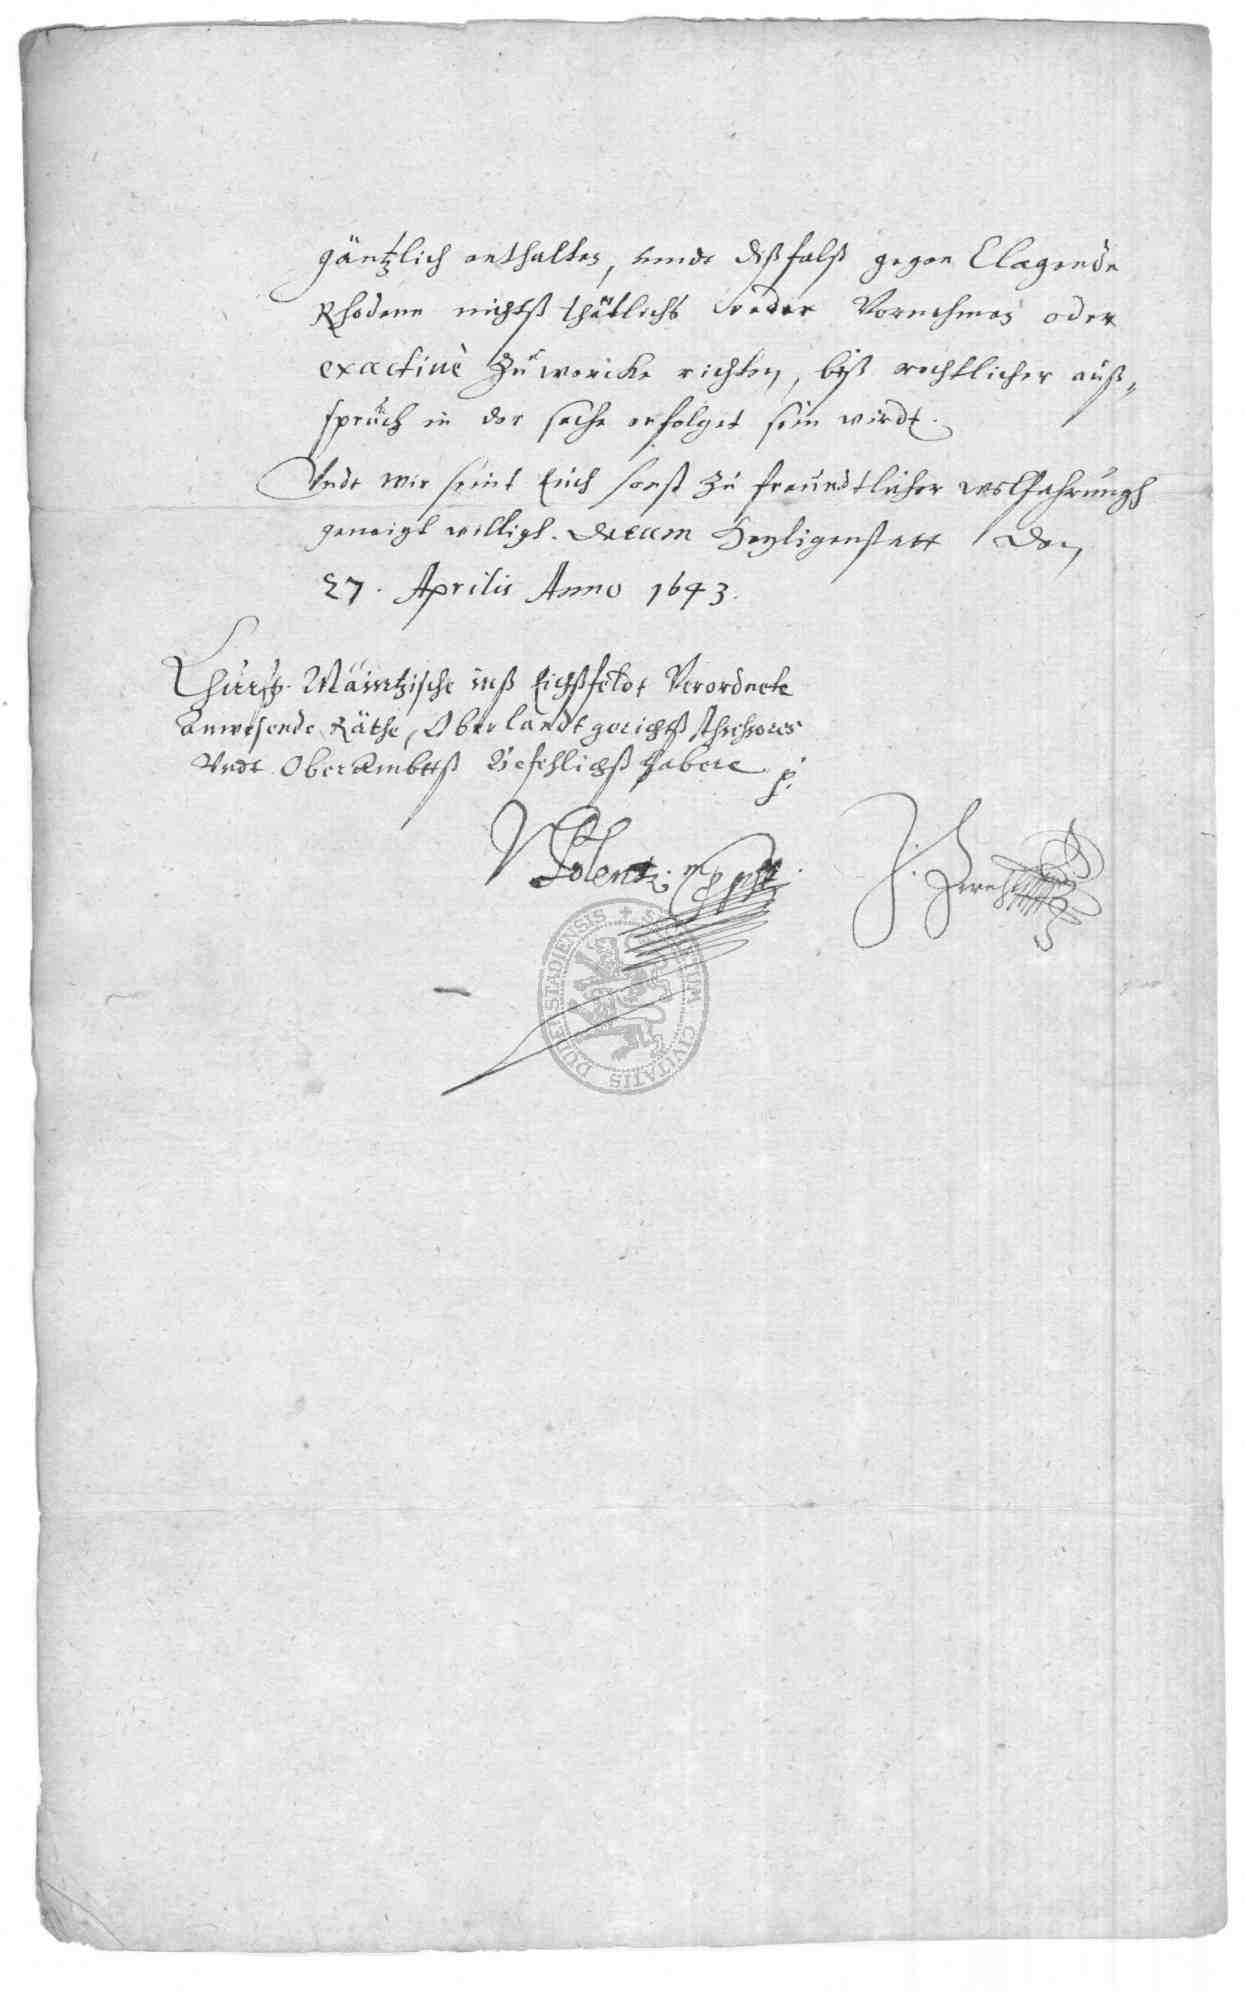 gäntzlich enthalten, unde dißfalß gegen Clagende
Rhodenn nichtß thätlichs weder Vornehmen oder
exactivè Zuwercke richten, biß rechtlicher auß-
spruch in der sache erfolget sein wirdt.
Undt wir seint Euch sonst zu freundtlicher wolfahrungh
geneigt willigk. Datum Heyligenstatt den
27. Aprilis Anno 1643.
Churf. Mäintzische inß Eichßfeldt Verordnete
Anwesende Räthe, Oberlandtgerichtß Assessores
Undt OberAmbttß Befehlichß habere
Polentz
SIGILLUM CIVITATIS DUDERSTADIENSIS